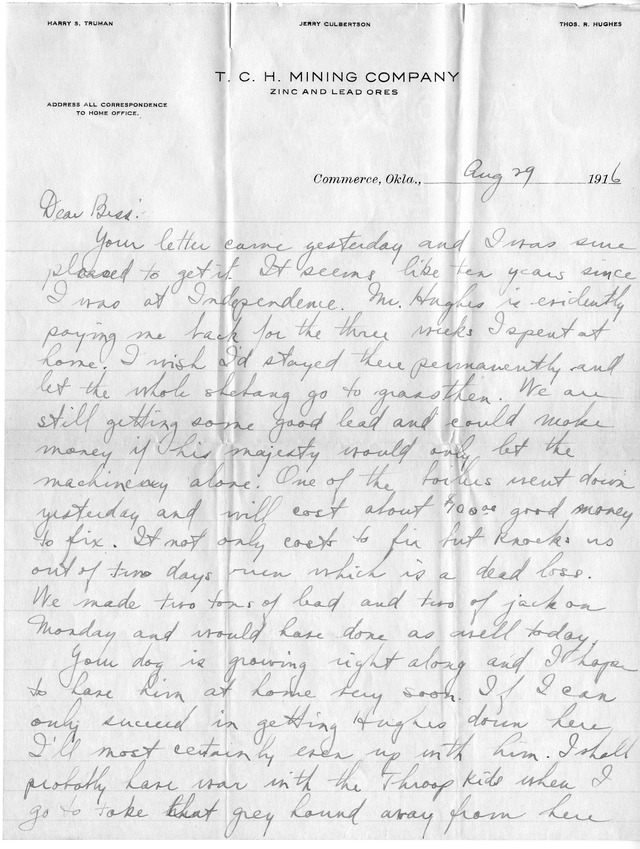 HARRY S. TRUMAN JERRY CULBERTSON THOS. R. HUGHES
T. C. H. MINING COMPANY
ZINC AND LEAD ORES
ADDRESS ALL CORRESPONDENCE
TO HOME OFFICE.
Commerce, Okla., Aug 29 1916
Dear Bess:
Your letter came yesterday and I was sure
pleased to get it. It seems like ten years since
I was at Independence. Mr. Hughes is evidently
paying me back for the three weeks I spent at
home. I wish I'd stayed there permanently and
let the whole shebang go to grass then. We are
still getting some good lead and could make
money if his majesty would only let the
machinery alone. One of the boilers went down
yesterday and will cost about good money
to fix. It not only costs to fix but knocks us
out of two days run which is a dead loss.
We made two tons of lead and two of jack on
Monday and would have done as well today.
Your dog is growing right along and I hope
to have him at home very soon. If I can
only succeed in getting Hughes down here
I'll most certainly even up with him. I shall
probably have war with the Throop kids when I
go to take that grey hound away from here